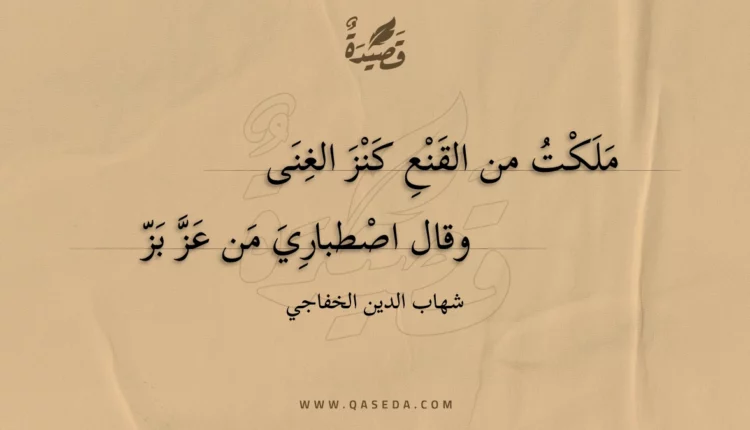 قَصِيْدَةٌ
مَلَكْتُ من القَنْعِ كَنْزَ الغِنَى
وقال اصْطبارِيَ مَن عَزَّ بَزّ
شهاب الدين الخفاجي
WWW.QASEDA.COM